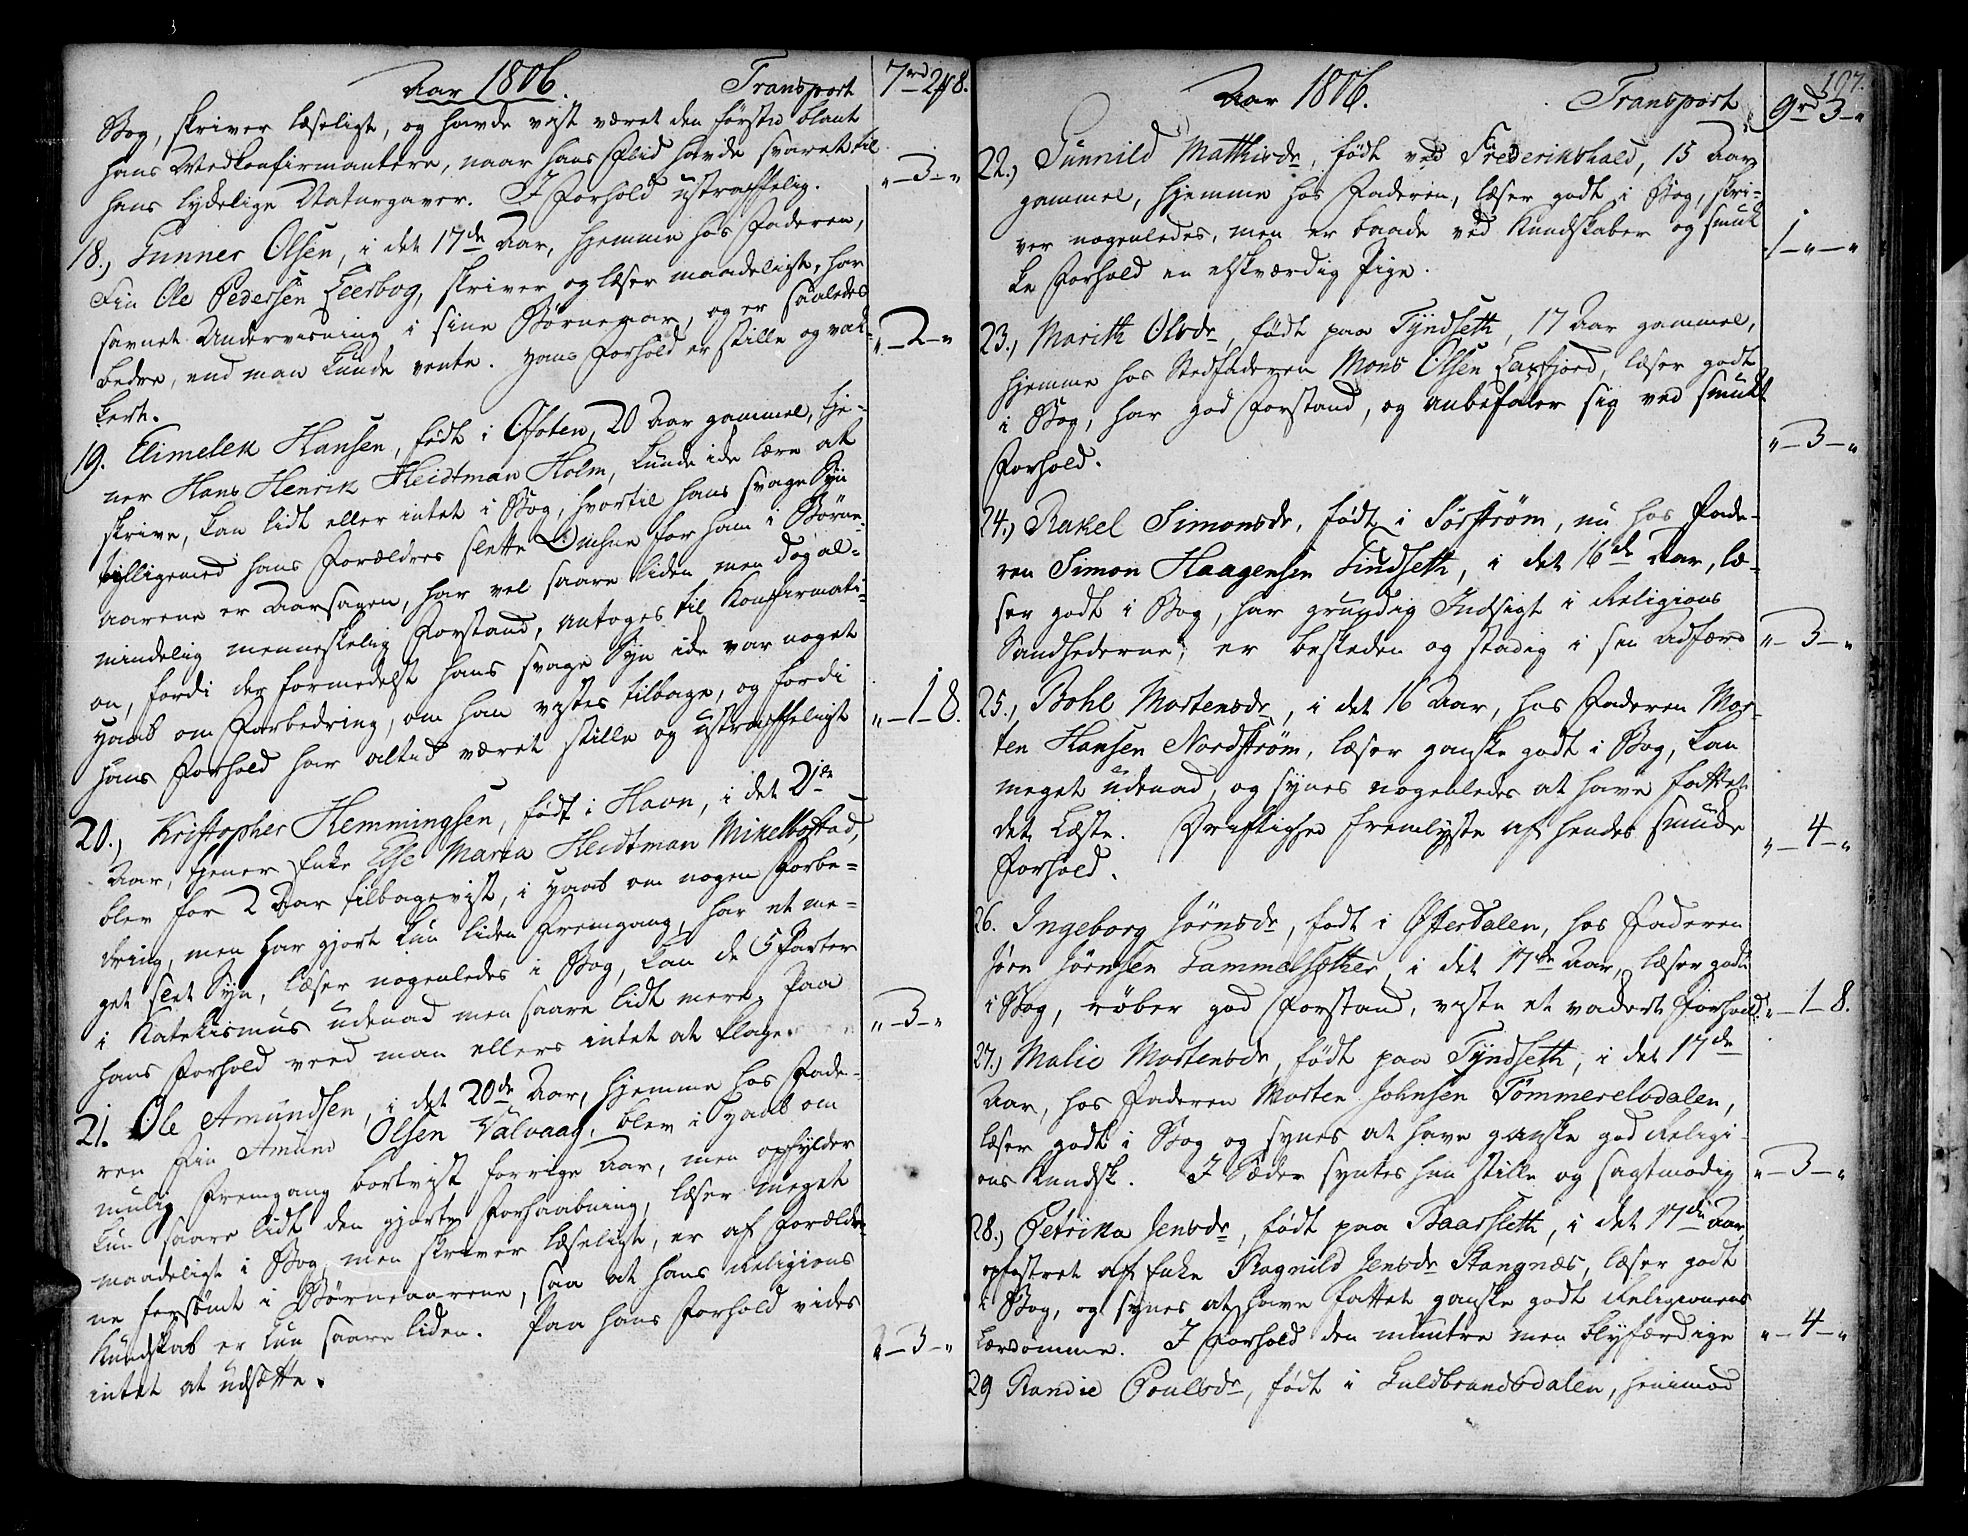 Aar 1806. Transport 7rd 2 # 8.
Bog, skriver læseligt, og havde vist været den første blant
hans Medkonfirmantere, naar hans Flid havde svaret til
hans lydelige Naturgaver. I Forhold ustraffelig. „–3–„
18., Gunner Olsen, i det 17de Aar, hjemme hos Faderen,
Fin Ole Pedersen Leerbog, skriver og læser maadeligt, har
savnet Undervisning i sine Børneaar, og er saaledes
bedre, end man kunde vente. Hans Forhold er stille og vak- „–2–„
kert.
19. Elimelek Hansen, født i Ofoten, 20 Aar gammel, tje-
ner Hans Henrik Heidtman Holm, kunde ide lære at
skrive, kan lidt eller intet i Bog, hvortil hans svage Syn
tilligemed hans Forældres slette Omhue for ham i Børne-
aarene er Aarsagen, har vel saare liden men dog al-
mindelig menneskelig Forstand, antoges til Konfirmati-
on, fordi der formedelst hans svage Syn ide var noget
Haab om Forbedring, om han vystes tilbage, og fordi
hans Forhold har altid været stille og ustraffeligt „–1–8.
20., Kristopher Hemmingsen, født i Havn, i det 21de
Aar, tjener Enke Else Maria Heidtman Mikelbostad,
blev for 2 Aar tilbagevist, i Haab om nogen Forbe-
dring, men har gjort kun liden Fremgang, har et me-
get slet Syn, læser nogenledes i Bog, kan de 5 Parter
i Katekismus udenad men saare lidt mere. Paa
hans Forhold veed man ellers intet at klage. „–3–„
21. Ole Amundsen, i det 20de Aar, hjemme hos Fade-
ren Fin Amund Olsen Kalvaag, blev i Haab om
mulig Fremgang bortvist forrige Aar, men opfylder
kun saare lidt den gjorte Forhaabning, læser meget
maadeligt i Bog, men skriver læseligt, er af Forældre-
ne forsømt i Børneaarene, saa at hans Religions
Kundskab er kun saare liden. Paa hans Forhold vides
intet at udsætte. „–3–„
107.
Aar 1806. Transport 9rd 3–„
22., Gunnild Mathisdr, født ved Frederikshald, 15 Aar
gammel, hjemme hos Faderen, læser godt i Bog, skri-
ver nogenledes, men er baade ved Kundskaber og smuk
ke Forhold en elskværdig Pige. 1–„–„
23., Marith Olsdr, født paa Tyndseth, 17 Aar gammel,
hjemme hos Stedfaderen Mons Olsen Laxfjord, læser godt
i Bog, har god Forstand, og anbefaler sig ved smukt
Forhold. „–3–„
24., Rakel Simonsdr, født i Sørstrøm, nu hos Fade-
ren Simon Haagensen Tindseth, i det 16de Aar, læ-
ser godt i Bog, har grundig Indsigt i Religions
Sandhederne; er beskeden og stadig i sin Adfærd „–3–„
25., Bohl Mortensdr, i det 16 Aar, hos Faderen Mor-
ten Hansen Nordstrøm, læser ganske godt i Bog, kan
meget udenad, og synes nogenledes at have fattet
det Læste. Driftighed fremlyste af hendes smukke
Forhold. „–4–„
26. Ingeborg Jørnsdr, født i Østerdalen, hos Faderen
Jørn Jørnsen Gammelsæther, i det 17de Aar, læser godt
i Bog, røber god Forstand, viste et vakert Forhold. „–1–8.
27., Malie Mortensdr, født paa Tyndseth, i det 17de
Aar, hos Faderen Morten Johnsen Tømmerelvdalen,
læser godt i Bog og synes at have ganske god Religi
ons Kundsk. I Sæder syntes hun stille og sagtmodig „–3–„
28., Petrika Jensdr, født paa Baarsleth, i det 17de Aar,
opfostret af Enke Ragnild Jensdr Stangnæs, læser godt
i Bog, og synes at have fattet ganske godt Religionens
Lærdomme. I Forhold den muntre men blyfærdige „–4–„
29 Randie Poulsdr, født i Guldbrandsdalen, henimod